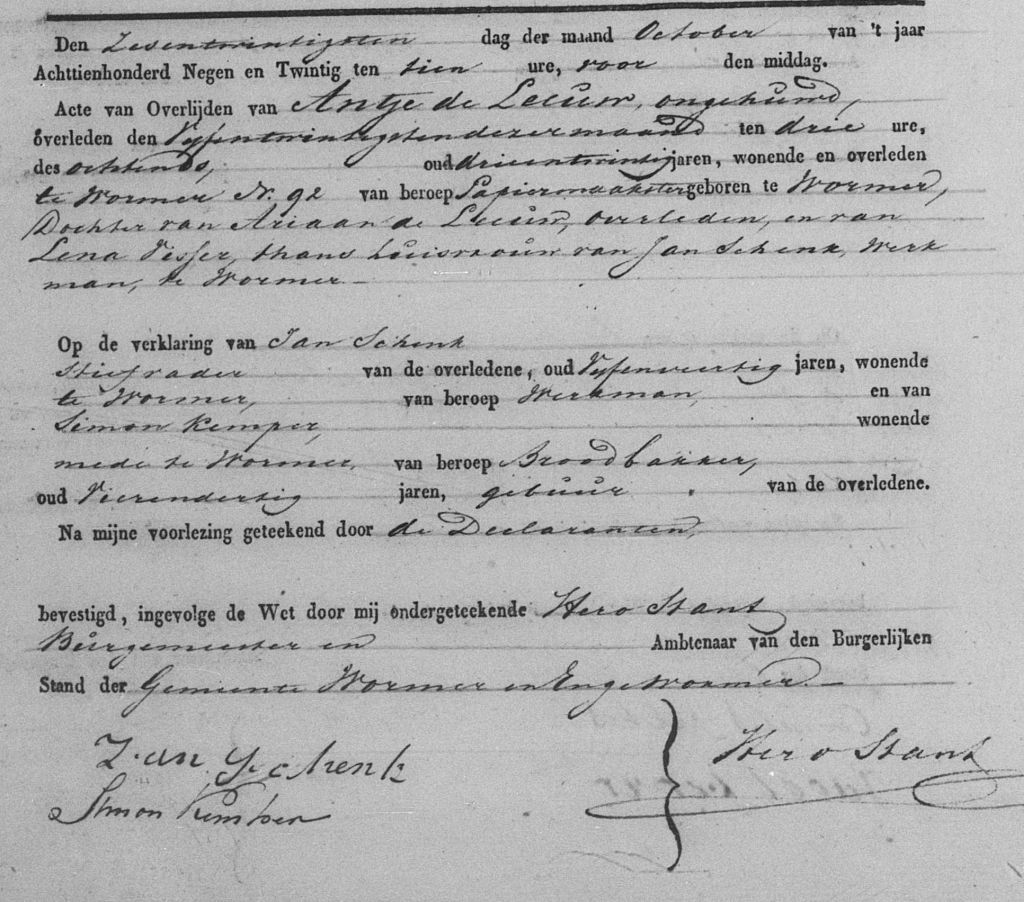 Den Zesentwintigsten dag der maand October van 't jaar
Achttienhonderd Negen en Twintig ten tien ure, voor den middag.
Acte van Overlijden van Antje de Leeuw, ongehuwd,
overleden den Vyfentwintigsten dezer maand ten drie ure,
des ochtends, oud drieentwintig jaren, wonende en overleden
te Wormer N. 92 van beroep Papiermaakster geboren te Wormer,
Dochter van Ariaan de Leeuw, overleden, en van
Lena Visser, thans huisvrouw van Jan Schenk, Werk
man, te Wormer –
Op de verklaring van Jan Schenk
Stiefvader van de overledene, oud Vyfenveertig jaren, wonende
te Wormer, van beroep Werkman, en van
Simon Kemper, wonende
mede te Wormer, van beroep Broodbakker,
oud Vierendertig jaren, gebuur van de overledene.
Na mijne voorlezing geteekend door de Declaranten,
bevestigd, ingevolge de Wet door mij ondergeteekende Hero Stant
Burgemeester en Ambtenaar van den Burgerlijken
Stand der Gemeente Wormer en Enge Wormer. –
Jan Schenk
Hero Stant
Simon Kemper